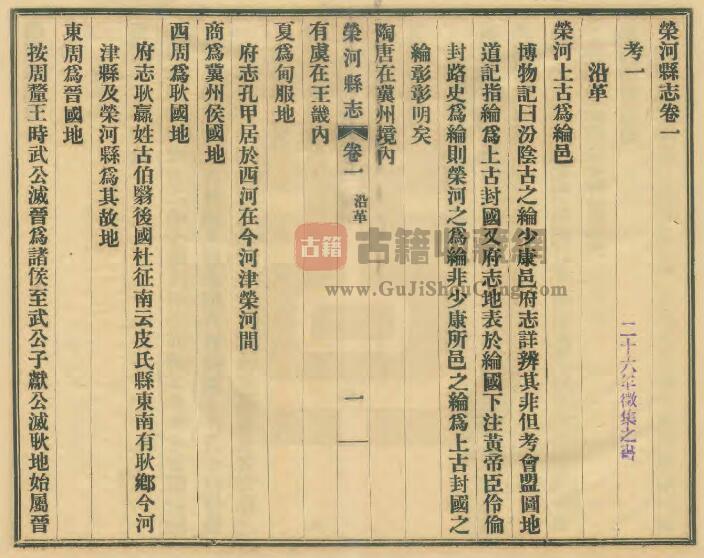 榮河縣志卷一
考一
沿革
榮河上古爲綸邑
博物記曰汾陰古之綸少康邑府志詳辨其非但考會盟圖地
道記指綸爲上古封國又府志地表於綸國下注黃帝臣伶倫
封路史爲綸則榮河之爲綸非少康所邑之綸爲上古封國之
綸彰彰明矣
陶唐在冀州境內
有虞在王畿內
榮河縣志
卷一
沿革
一
夏爲甸服地
府志孔甲居於西河在今河津榮河間
商爲冀州侯國地
西周爲耿國地
府志耿嬴姓古伯翳後國杜征南云皮氏縣東南有耿鄉今河
津縣及榮河縣爲其故地
東周爲晉國地
按周釐王時武公滅晉爲諸侯至武公子獻公滅耿地始屬晉
二十六年徵集之書
古籍
古籍收藏網
www.GuJiShouCang.com